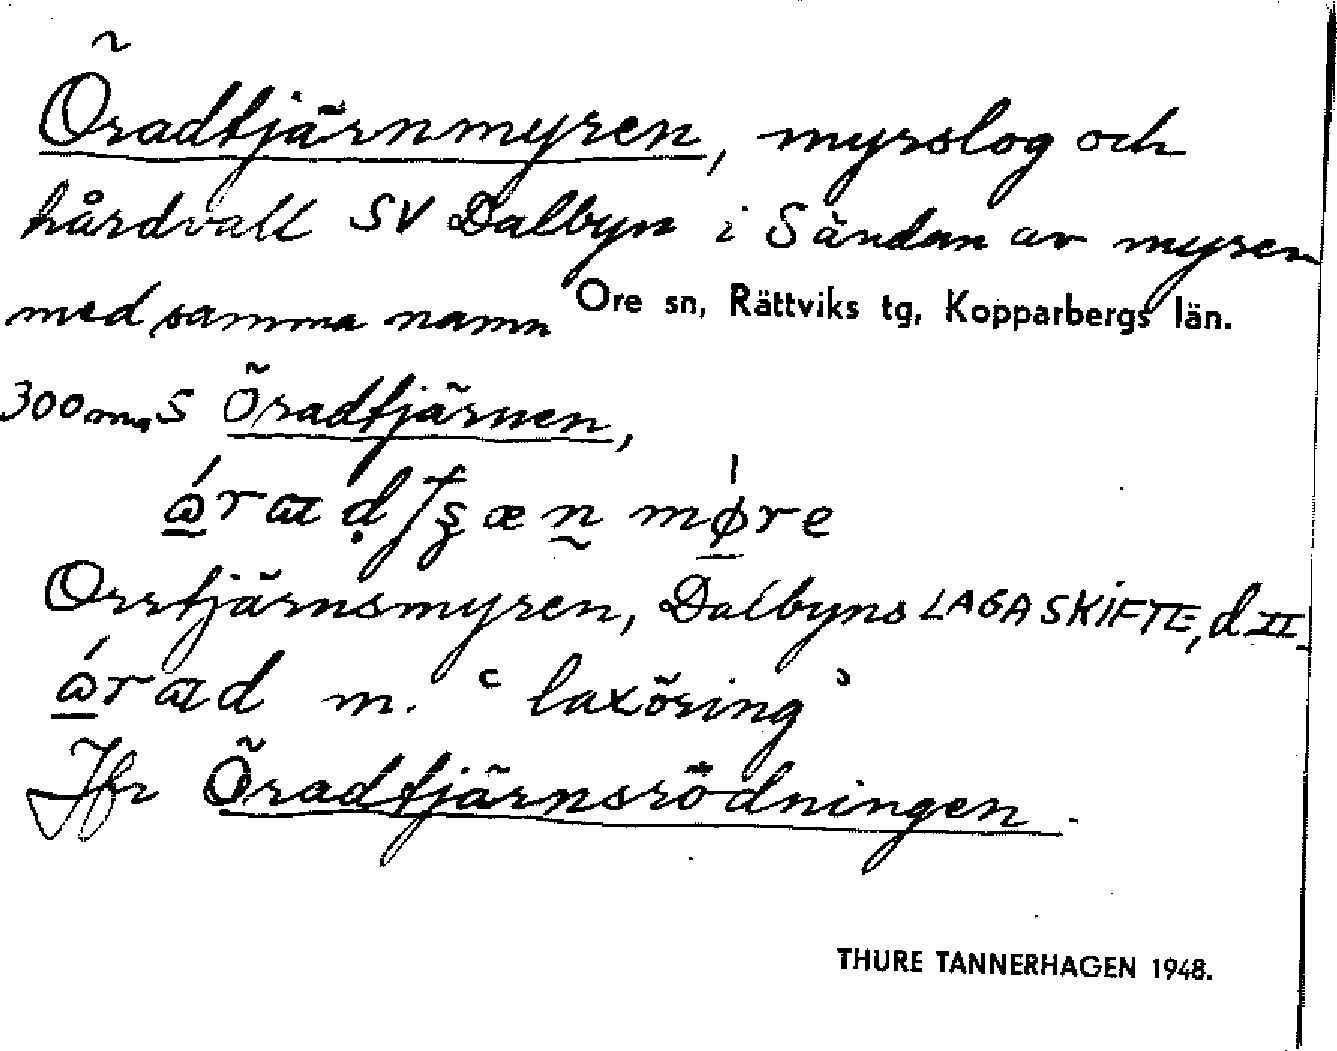 Öradtjärnmyren, myrslog och
hårdvall SV Dalbyn i Sändan av myren
med samma namn
Ore sn, Rättviks tg, Kopparbergs län.
300 m S Öradtjärnen,
Orrtjärnsmyren, Dalbyns LAGA SKIFTE, d II.
m. ‘laxöring’
Jfr Öradtjärnsrödningen.
THURE TANNERHAGEN 1948.